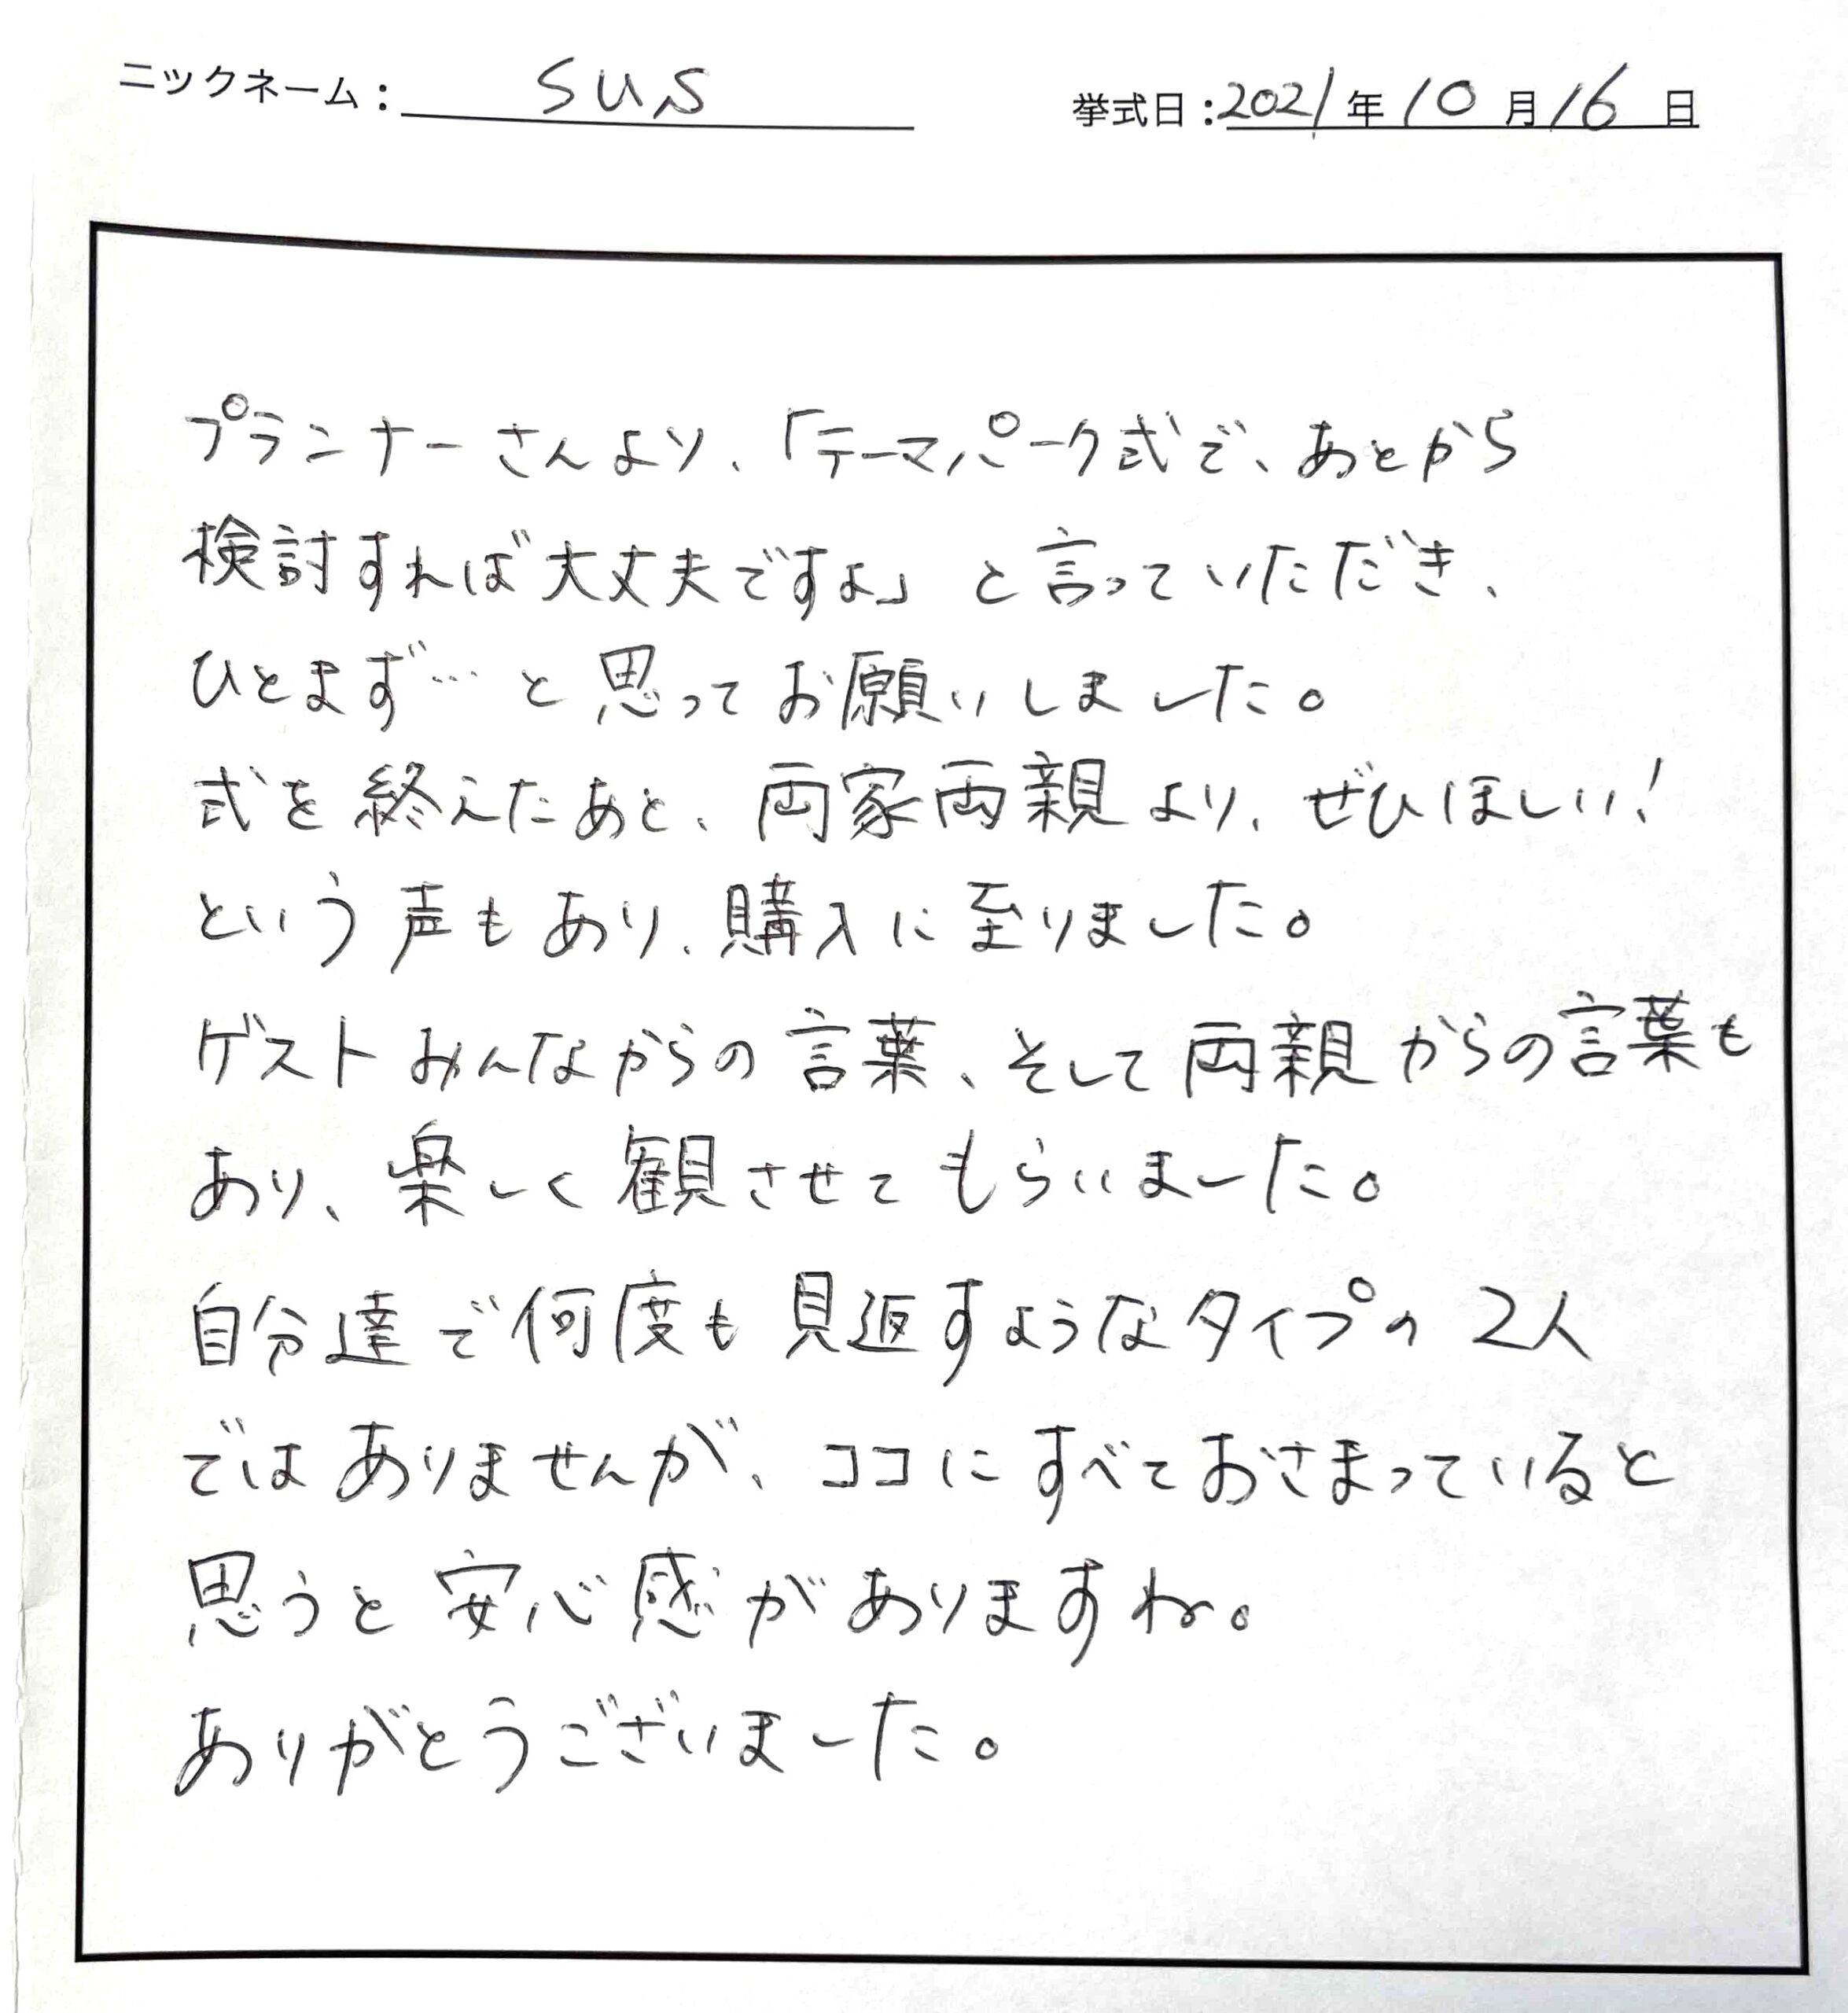 ニックネーム： sus 挙式日：2021年10月16日
プランナーさんより、「テーマパーク式で、あとから
検討すれば大丈夫ですよ」と言っていただき、
ひとまず…と思ってお願いしました。
式を終えたあと、両家両親より、ぜひほしい！
という声もあり、購入に至りました。
ゲストみんなからの言葉、そして両親からの言葉も
あり、楽しく観させてもらいました。
自分達で何度も見返すようなタイプの2人
ではありませんが、ココにすべておさまっていると
思うと安心感がありますね。
ありがとうございました。